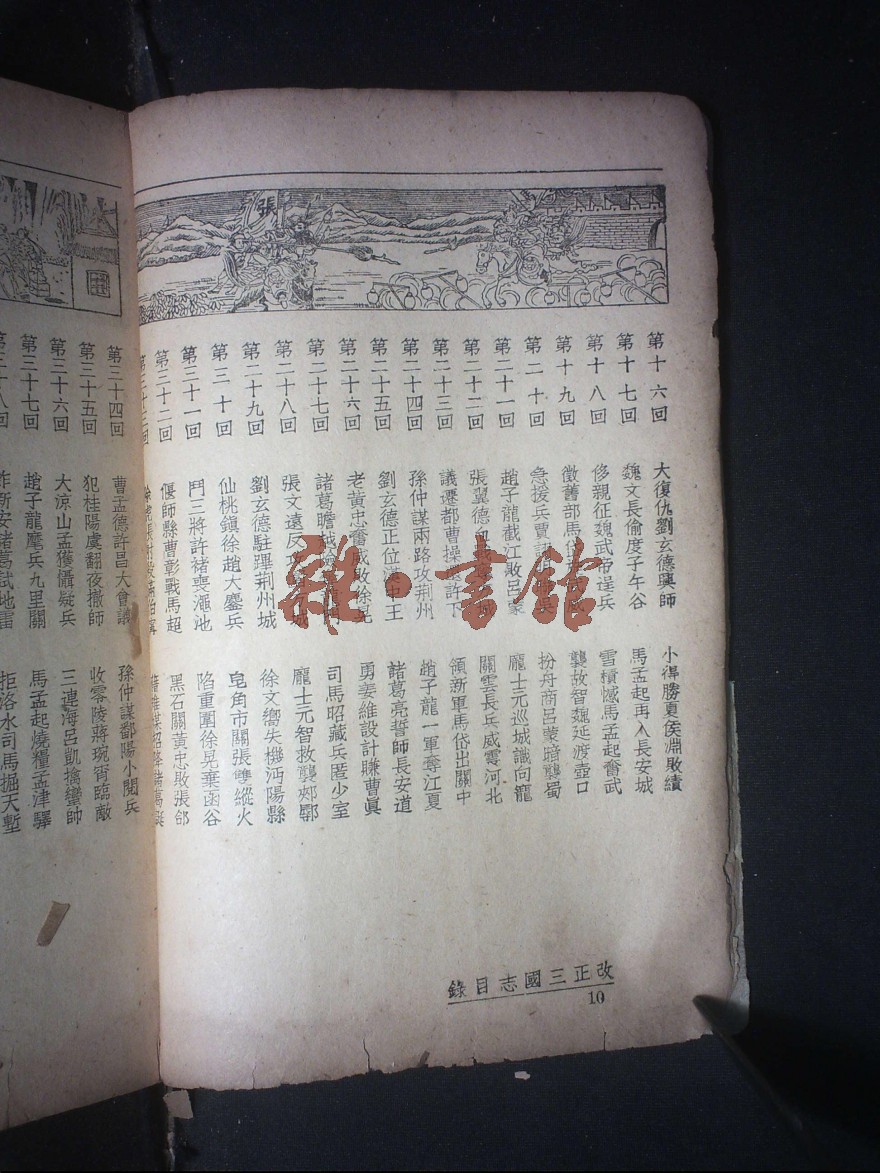 張
第十六回 大復仇劉玄德興師 小得勝夏侯淵敗績
第十七回 魏文長偷度子午谷 馬孟起再入長安城
第十八回 侈親征魏武帝逞兵 雪積憾馬孟起奮武
第十九回 徵舊部馬岱 襲故智魏延渡壺口
第二十回 急援兵賈詡 扮舟商呂蒙暗襲蜀
第二十一回 趙子龍截江敗呂蒙 龐士元巡城識向寵
第二十二回 張翼德血戰 城 關雲長兵威震河北
第二十三回 議遷都曹操還許下 領新軍馬岱出關中
第二十四回 孫仲謀兩路攻荆州 趙子龍一軍奪江夏
第二十五回 劉玄德正位漢中王 諸葛亮誓師長安道
第二十六回 老黃忠奮威敗徐晃 勇姜維設計賺曹眞
第二十七回 諸葛瞻越 司馬昭藏兵匿少室
第二十八回 張文遠反攻 城 龐士元智救襲郟鄏
第二十九回 劉玄德駐驆荆州城 徐文嚮失機沔陽縣
第三十回 仙桃鎮徐趙大鏖兵 皂角市關張雙縱火
第三十一回 鬥三將許褚喪澠池 陷重圍徐晃棄函谷
第三十二回 偃師縣曹彰戰馬超 黑石關黃忠敗張郃
第三十三回
第三十四回 曹孟德許昌大會議 孫仲謀鄱陽小閱兵
第三十五回 犯桂陽虞翻夜撤師 收零陵蔣琬宵臨敵
第三十六回 大涼山孟獲懾疑兵 三連海呂凱擒蠻帥
第三十七回 趙子龍鏖兵九里關 馬孟起燒糧孟津驛
第三十八回 昨新安諸葛試地雷 拒洛水司馬掘天塹
改正三國志目錄
10
雜·書館